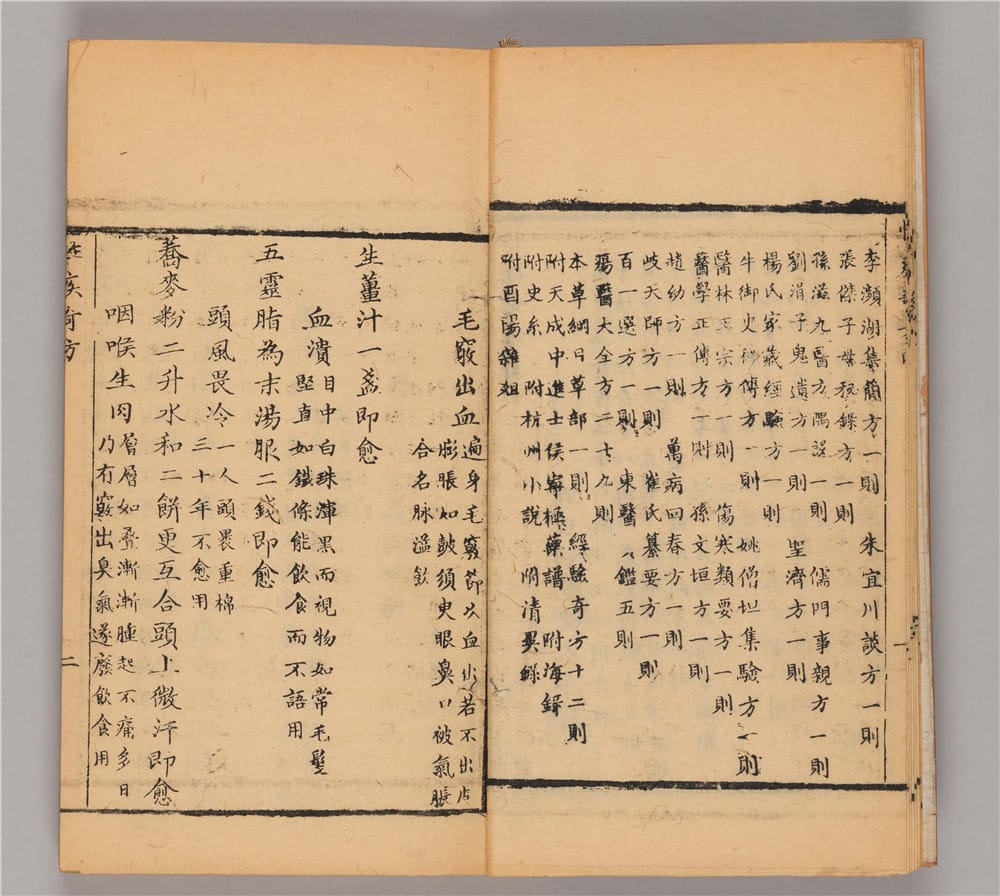 李瀕湖集簡方一則 朱宜川談方一則
張傑子母秘錄方一則
孫滋九醫方隅說一則 儒門事親方一則
劉涓子鬼遺方一則 聖濟方一則
楊氏家藏經驗方一則 姚僧坦集驗方一則
牛御史秘傳方一則
醫林正宗方一則 傷寒類要方一則
醫學正傳方一則 孫文垣方一則
趙幼方一則 萬病回春方一則
岐天師方一則 崔氏纂要方一則
百一選方一則 東醫 鑑五則
瘍醫大全方二十九則
本草綱目草部一則 經驗奇方十二則
附天成中進士侯寧極藥譜 附海錄
附史系 附杭州小說 附清異錄
附酉陽雜俎
毛竅出血遍身毛竅節次血出若不出
膨脹如皷須臾眼鼻口被氣脹
合名脉溢飲
生薑汁一盞即愈
血潰目中白珠渾黑而視物如常毛髮
堅直如鐵條能飲食而不語用
五靈脂為末湯服二錢即愈
頭風畏冷一人頭裹重棉
三十年不愈用
蕎麥粉二升水和二餅更互合頭上微汗即愈
咽喉生肉層層如疊漸漸腫起不痛多日
乃有竅出臭氣遂廢飲食用
疾奇方
二